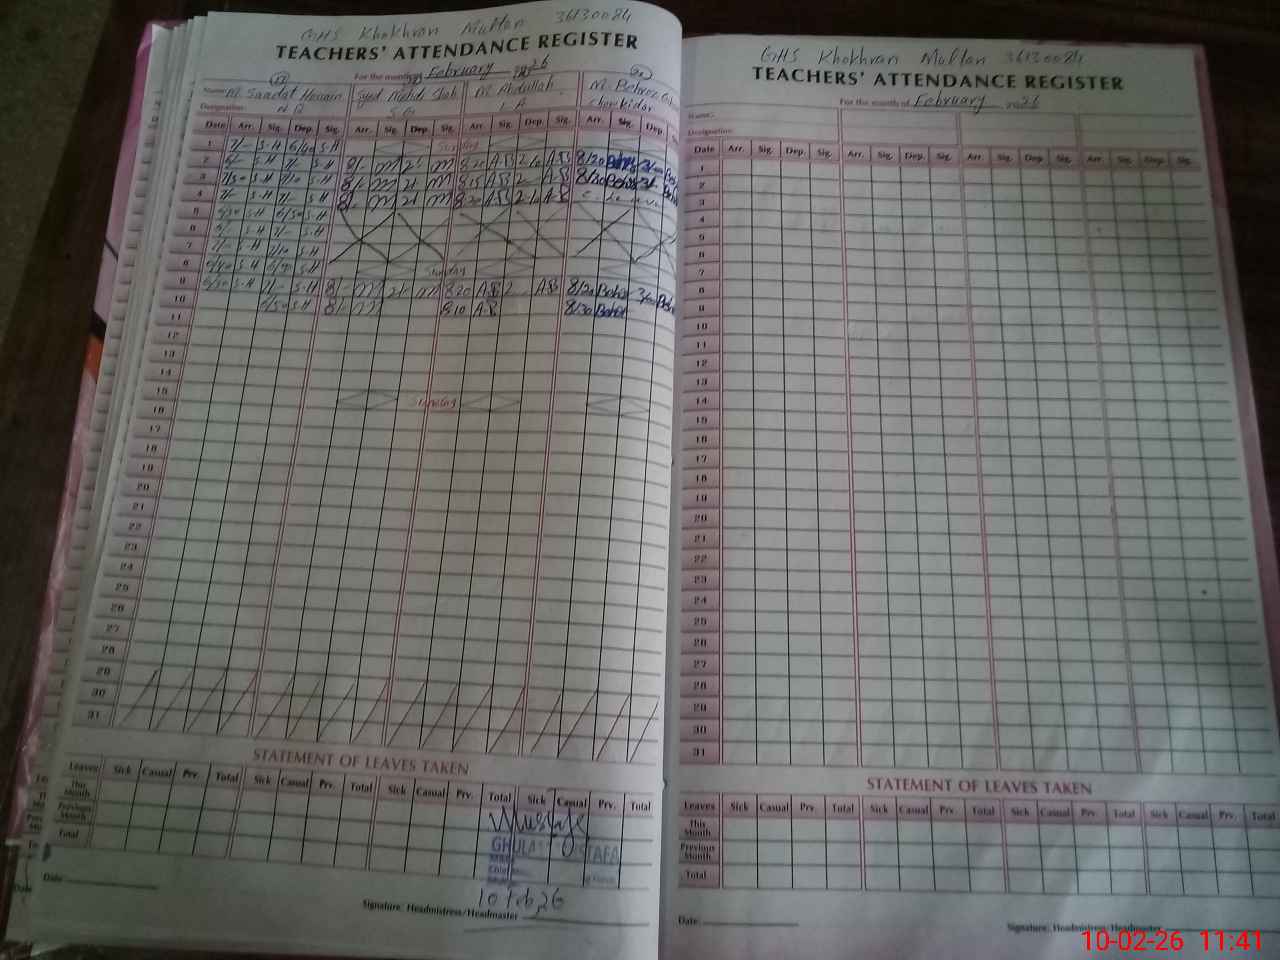 GHS Khokhran Multan 36130084
TEACHERS' ATTENDANCE REGISTER
For the month of February 26
Name: M. Saadat Hussain Syed Mehdi Shah M. Abdullah M. Behroz
Designation: N.Q S.G L.A Chowkidar
Date Arr. Sig. Dep. Sig. Arr. Sig. Dep. Sig. Arr. Sig. Dep. Sig. Arr. Sig. Dep.
1 7/- S.H 6/40 S.H Sunday
2 6/- S.H 7/- S.H 8/- m 2/- m 8.20 A.B 2/10 A.B 8/20 Behroz 3/00
3 7/50 S.H 7/10 S.H 8/- m 2/- m 8.15 A.B 2 A.B 8/30 Behroz 3/-
4 7/- S.H 7/- S.H 8/- m 2/- m 8.20 A.B 2/10 A.B
5 6/50 S.H 6/50 S.H
6 S.H 7/- S.H
7 7/- S.H 7/10 S.H
8 6/40 S.H 6/40 S.H Sunday
9 6/50 S.H 7/- S.H 8/- m 2/- m 8.20 A.B 2 A.B 8/30 Behroz 3/00
10 6/50 S.H 8/- m 8.10 A.B 8/30 Behroz
11
12
13
14
15 Sunday
16
17
18
19
20
21
22
23
24
25
26
27
28
29
30
31
STATEMENT OF LEAVES TAKEN
Leaves Sick Casual Prv. Total Sick Casual Prv. Total Sick Casual Prv. Total Sick Casual Prv. Total
This Month
Previous Month
Total
Mustafa
GHULAM MUSTAFA
10 Feb, 26
Date
Signature, Headmistress/Headmaster
GHS Khokhran Multan 36130084
TEACHERS' ATTENDANCE REGISTER
For the month of February 2026
Name:
Designation:
Date Arr. Sig. Dep. Sig. Arr. Sig. Dep. Sig. Arr. Sig. Dep. Sig. Arr. Sig. Dep. Sig.
1
2
3
4
5
6
7
8
9
10
11
12
13
14
15
16
17
18
19
20
21
22
23
24
25
26
27
28
29
30
31
STATEMENT OF LEAVES TAKEN
Leaves Sick Casual Prv. Total Sick Casual Prv. Total Sick Casual Prv. Total Sick Casual Prv. Total
This Month
Previous Month
Total
Date
Signature, Headmistress/Headmaster
10-02-26 11:41